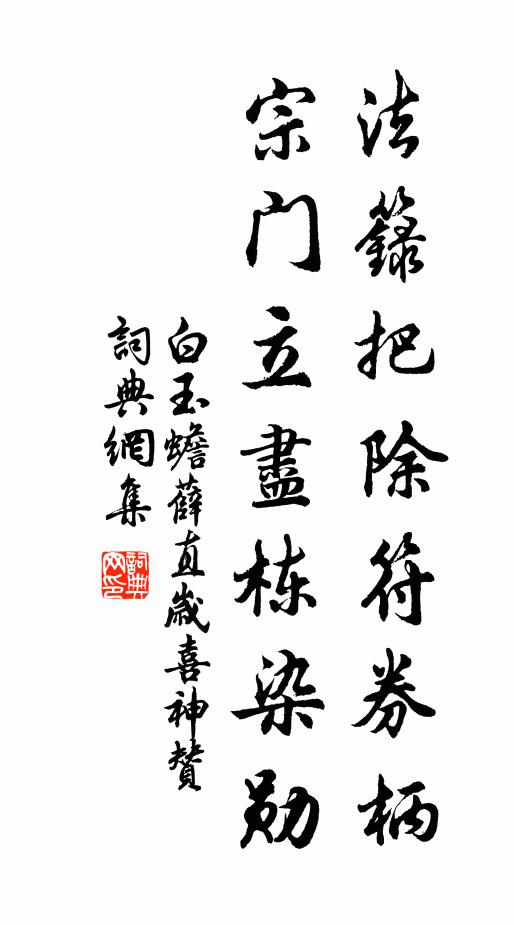 法籙把除符券柄
宗門立盡栋染勋
白玉蟾薛直歲喜神贊
詞典網集
詞典
网印